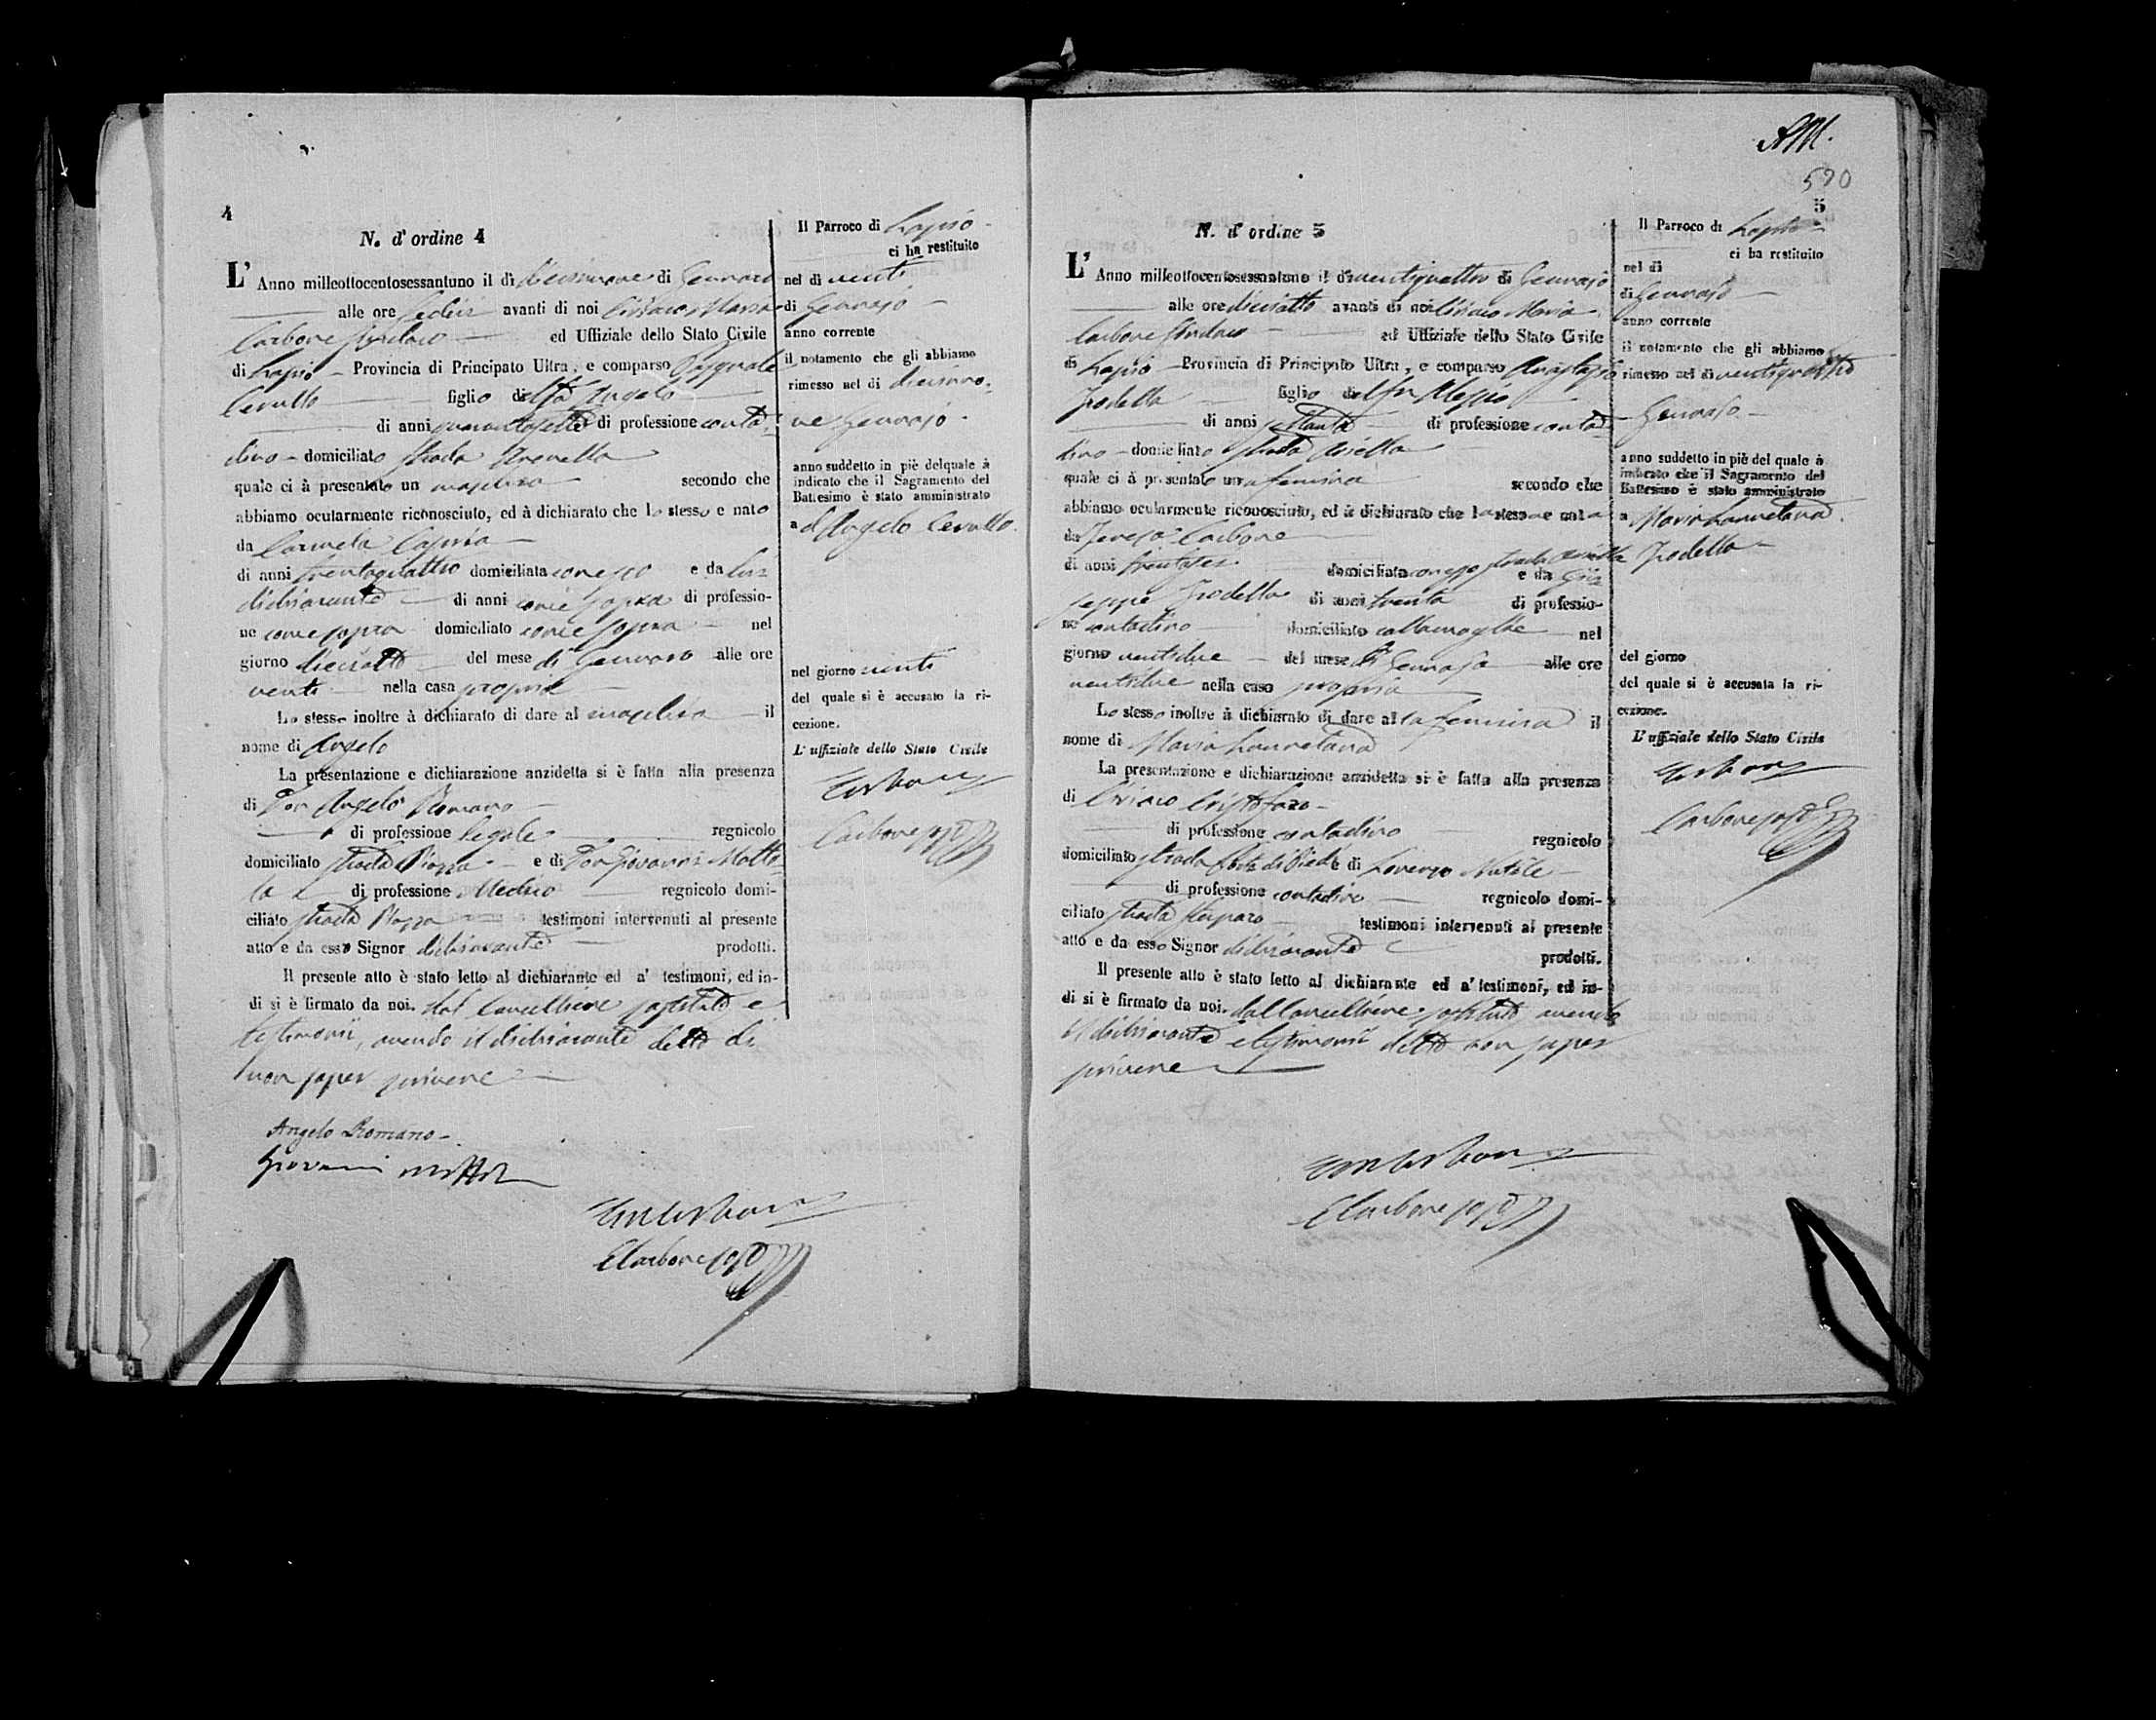 4
N. d' ordine 4
L' Anno milleottocentosessantuno il dì diecinove di Gennaro
alle ore sedici avanti di noi Ciriaco Maria
Carbone Sindaco ed Uffiziale dello Stato Civile
di Lapio Provincia di Principato Ultra, e comparso Pasquale
Cerullo figlio di Angelo
di anni quarantasette di professione conta-
dino domiciliato strada
quale ci à presentato un maschio secondo che
abbiamo ocularmente riconosciuto, ed à dichiarato che lo stesso e nato
da Carmela
di anni trentaquattro domiciliata con esso e da lui
dichiarante di anni come sopra di professio-
ne come sopra domiciliato come sopra nel
giorno dieciotto del mese di Gennaro alle ore
venti nella casa propria
Lo stesso inoltre à dichiarato di dare al maschio il
nome di Angelo
La presentazione e dichiarazione anzidetta si è fatta alla presenza
di Don Angelo Romano
di professione legale regnicolo
domiciliato strada Piazza e di Don Giovanni Motto-
la di professione Medico regnicolo domi-
ciliato strada Piazza testimoni intervenuti al presente
atto e da esso Signor dichiarante prodotti.
Il presente atto è stato letto al dichiarante ed a' testimoni, ed in-
di si è firmato da noi. dal Cancelliere sostituto e
testimonii, avendo il dichiarante detto di
non saper scrivere
Angelo Romano
Giovanni
Carbone
Il Parroco di Lapio
ci ha restituito
nel di venti
di Gennajo
anno corrente
il notamento che gli abbiamo
rimesso nel di diecino-
ve Gennajo
anno suddetto in piè delquale à
indicato che il Sagramento del
Battesimo è stato amministrato
a d Angelo Cerullo
nel giorno venti
del quale si è accusato la ri-
cezione.
L' uffiziale dello Stato Civile
Carbone
AM.
590
5
N. d' ordine 5
L' Anno milleottocentosessantuno il dì ventiquattro di Gennajo
alle ore dieciotto avanti di noi Ciriaco Maria
Carbone Sindaco ed Uffiziale dello Stato Civile
di Lapio Provincia di Principato Ultra, e comparso Anastasio
Trodella figlio di Alessio
di anni settanta di professione conta-
dino domiciliato strada
quale ci à presentato una femina secondo che
abbiamo ocularmente riconosciuto, ed à dichiarato che la stessa e nata
da Teresa Carbone
di anni trentasei domiciliata con esso strada e da Giu-
seppe Trodella di anni trenta di professio-
ne contadino domiciliato colla moglie nel
giorno ventidue del mese di Gennajo alle ore
ventidue nella casa propria
Lo stesso inoltre à dichiarato di dare alla femina il
nome di Maria Lauretana
La presentazione e dichiarazione anzidetta si è fatta alla presenza
di Ciriaco Cristofaro
di professione contadino regnicolo
domiciliato strada e di Lorenzo Natale
di professione contadino regnicolo domi-
ciliato strada testimoni intervenuti al presente
atto e da esso Signor dichiarante prodotti.
Il presente atto è stato letto al dichiarante ed a' testimoni, ed in-
di si è firmato da noi. dal Cancelliere sostituto avendo
il dichiarante e testimonii detto non saper
scrivere
Carbone
Il Parroco di Lapio
ci ha restituito
nel di
di Gennajo
anno corrente
il notamento che gli abbiamo
rimesso nel di ventiquattro
Gennajo
anno suddetto in piè del quale à
indicato che il Sagramento del
Battesimo è stato amministrato
a Maria Lauretana
Trodella
del giorno
del quale si è accusata la ri-
cezione.
L' uffiziale dello Stato Civile
Carbone